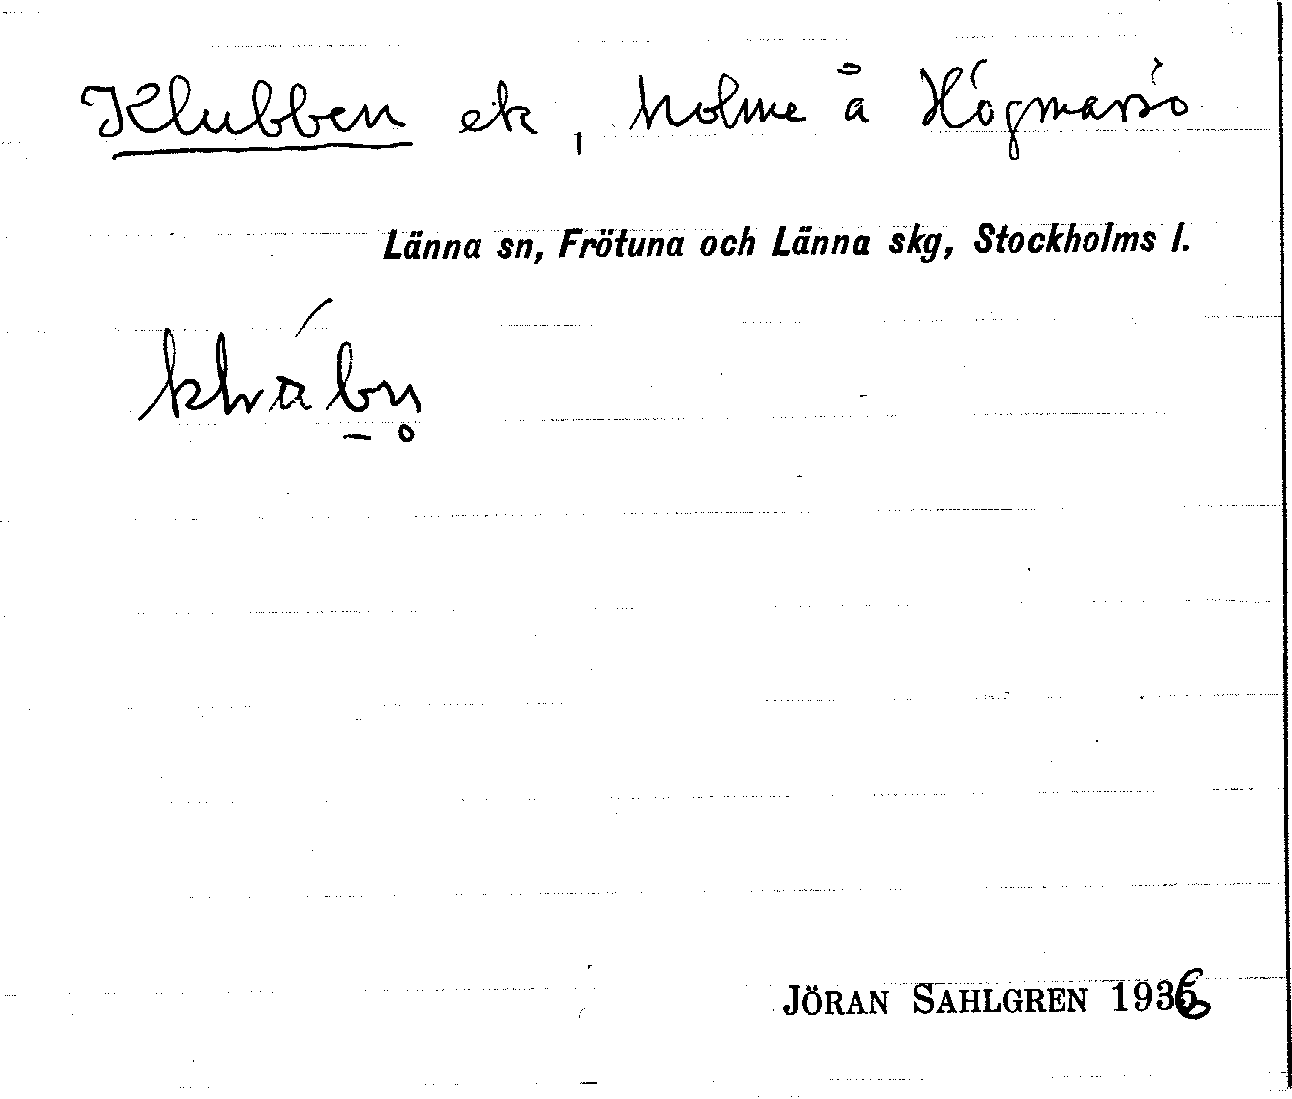 Klubben ek, holme å Högmarsö
Länna sn, Frötuna och Länna skg, Stockholms l.
JÖRAN SAHLGREN 1936